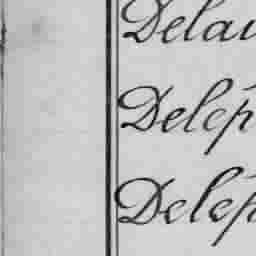 Delau
Delép
Delép